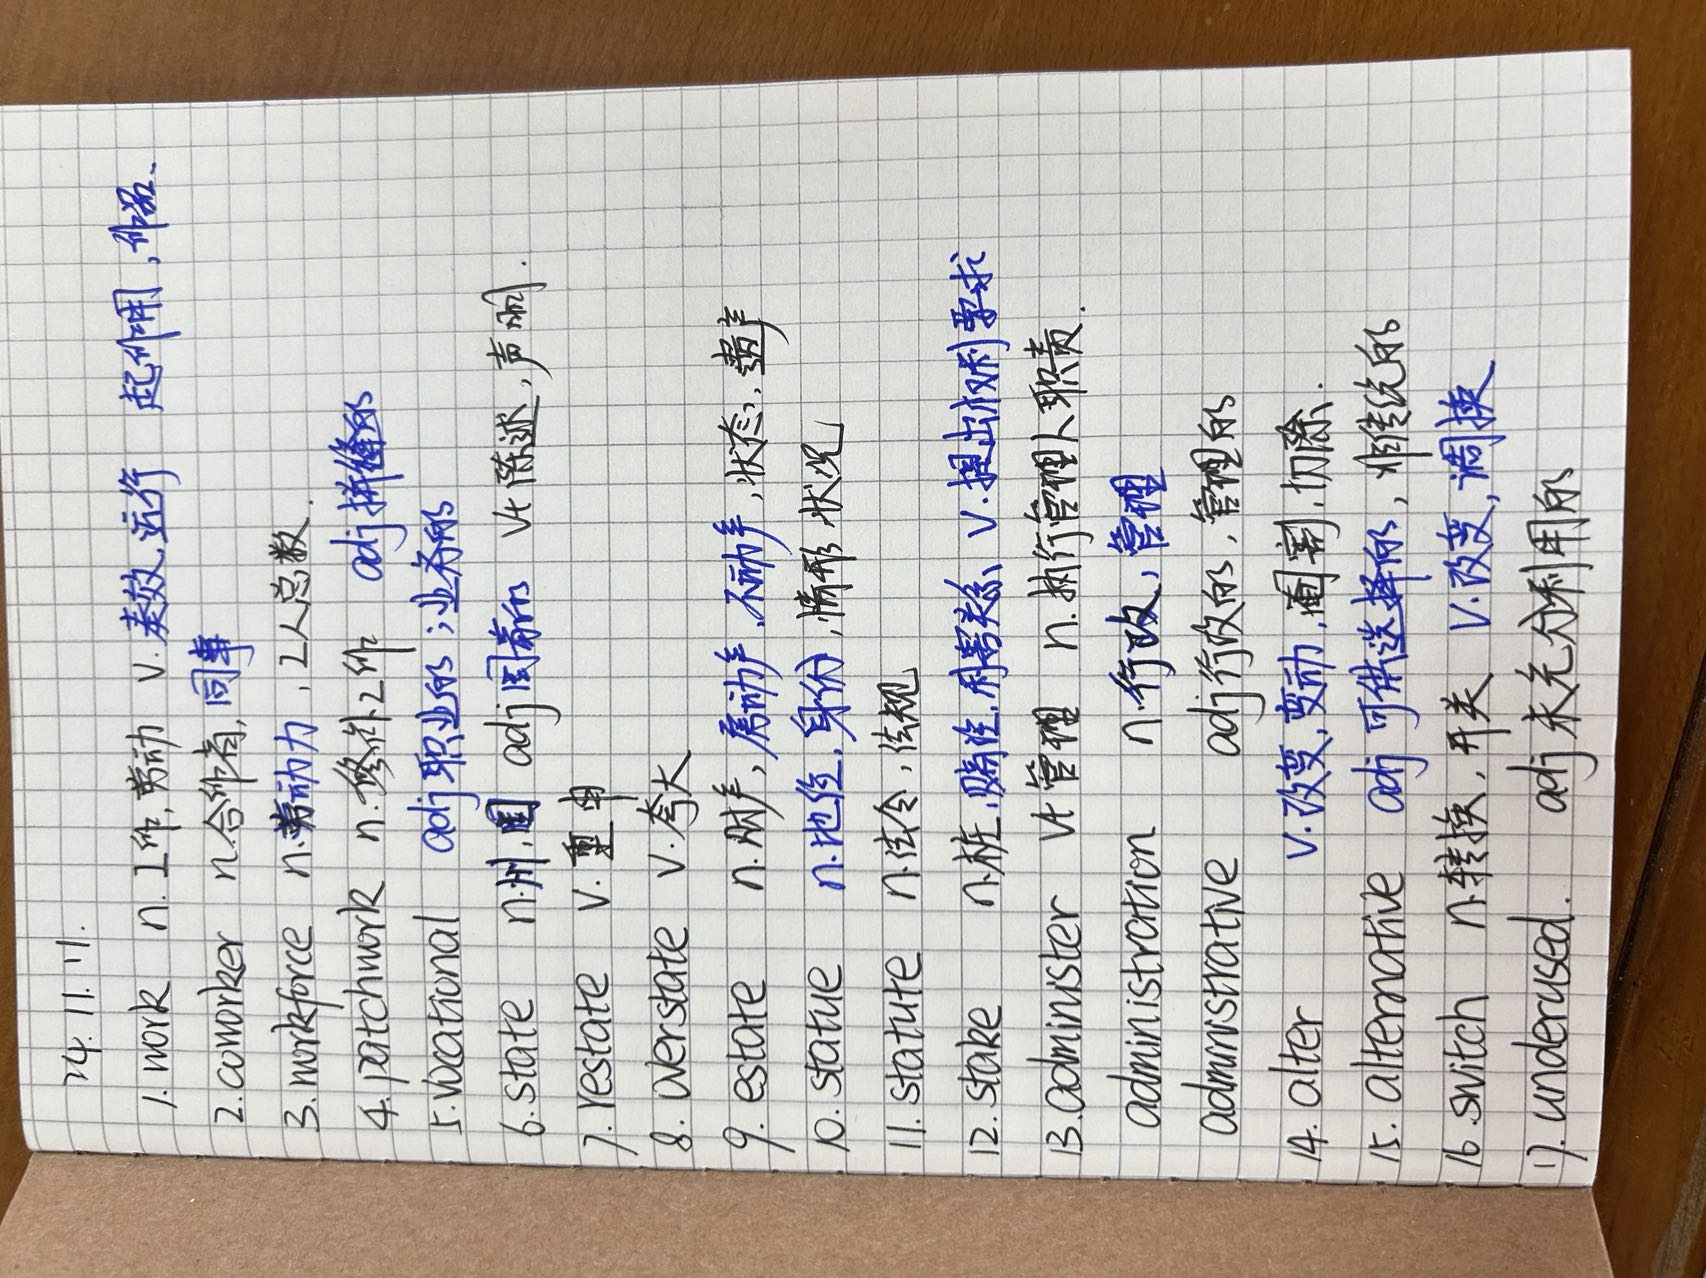 24.11.11.
1. work n.工作,劳动 v.奏效,运行 起作用,作品.
2. coworker n.合作者,同事
3. workforce n.劳动力,工人总数.
4. patchwork n.修补工作 adj拼缝的
5. vocational adj职业的;业务的
6. state n.州,国 adj国家的 vt陈述,声明.
7. restate v.重申
8. overstate v.夸大
9. estate n.财产,房动产,不动产,状态,遗产
10. statue n.地位,身份,情形,状况
11. statute n.法令,法规
12. stake n.桩,赌注,利害关系 v.提出权利要求
13. administer vt管理 n.执行管理人职责.
administration n.行政,管理
administrative adj行政的,管理的
14. alter v.改变,变动,阉割,切除.
15. alternative adj可供选择的,非传统的
16. switch n.转换,开关 v.改变,调换
17. underused. adj未充分利用的